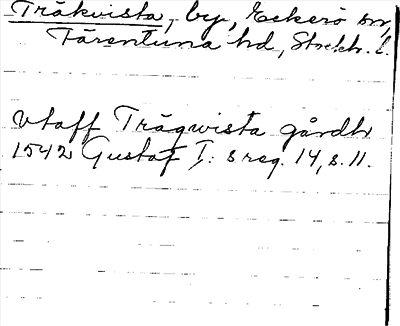 Träkvista, by, Ekerö sn,
Färentuna hd, Stockh. l.
Utaff Trägwista gårdh
1542 Gustaf I:s reg. 14, s. 11.